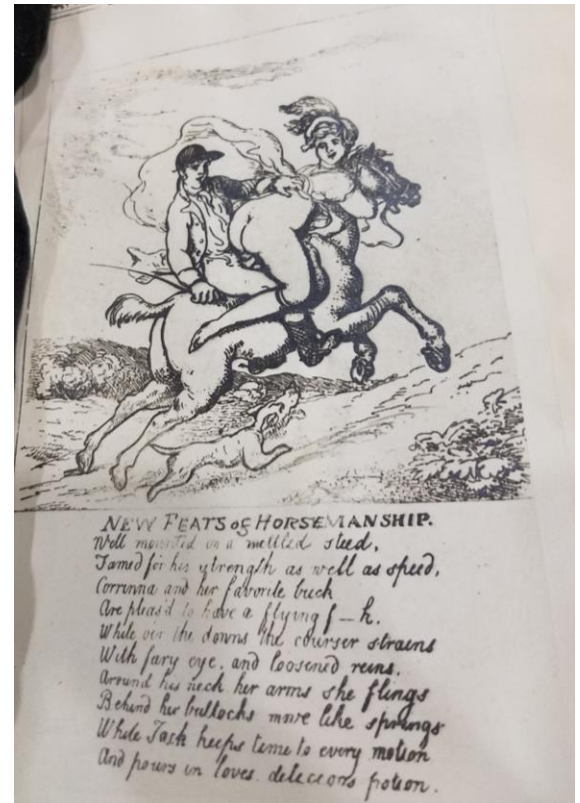 NEW FEATS of HORSEMANSHIP.
Well mounted on a mettled steed,
Famed for his strength as well as speed,
Corrinna and her favorite buck
Are pleas'd to have a flying f—k.
While o'er the downs the courser strains
With fiery eye, and loosened reins,
Around his neck her arms she flings
Behind her buttocks move like springs
While Jack keeps time to every motion
And pours in loves delicious potion.